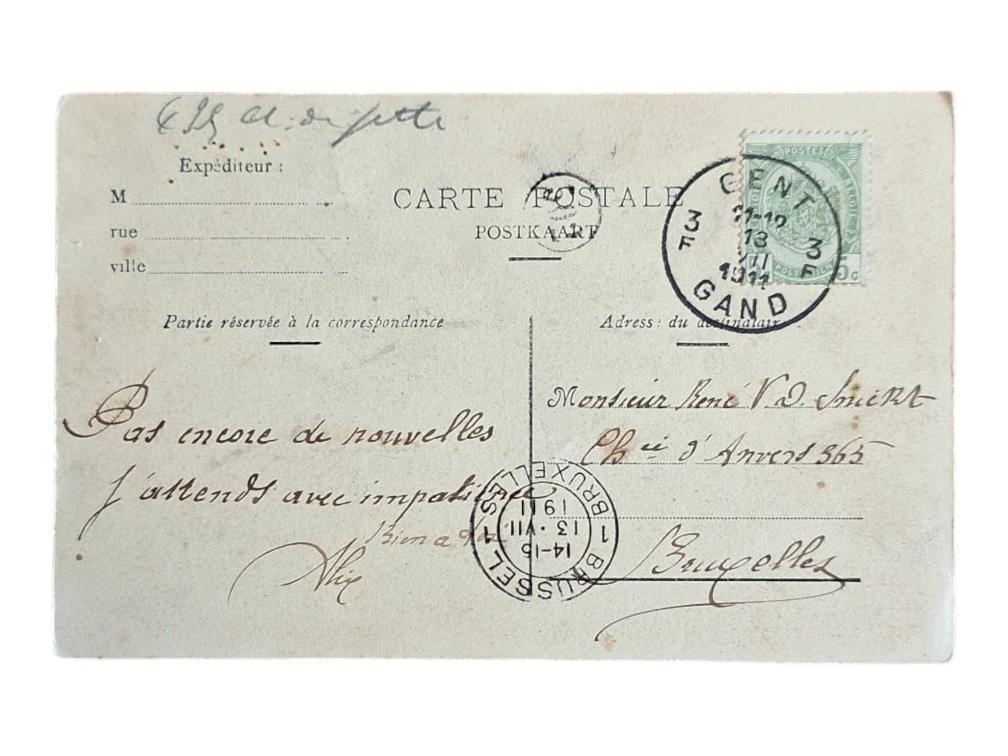 Expéditeur :
M
rue
ville
CARTE POSTALE
POSTKAART
GENT
3 F
11-12
13
VII
1911
3 F
GAND
POSTES
5c
Partie réservée à la correspondance
Adresse du destinataire
Pas encore de nouvelles
J'attends avec impatience
Bien à
Alix
Monsieur René V.D.
Chée d'Anvers 365
Bruxelles
1 BRUSSEL 1
14-15
13·VII
1911
BRUXELLES